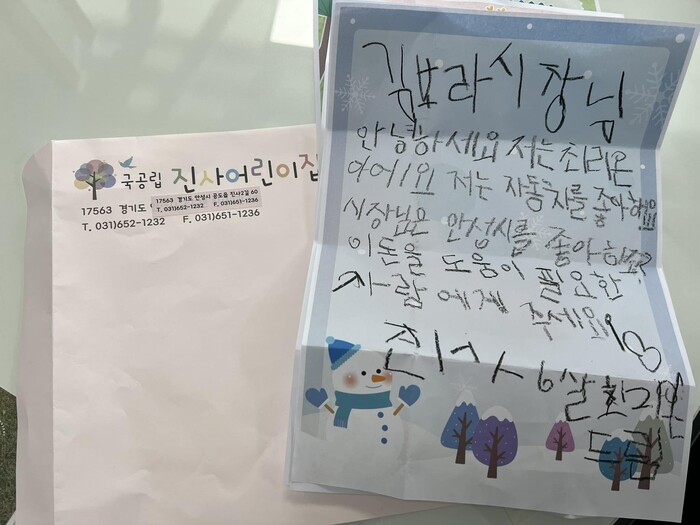 국공립 진사어린이집
17563 경기도
17563 경기도 안성시 공도읍 진사2길 60
T. 031)652-1232 F. 031)651-1236
T. 031)652-1232 F. 031)651-1236
김보라시장님
안녕하세요 저는 최리온
이에요 저는 자동차를 좋아해요
시장님은 안성시를 좋아하죠?
이 돈을 도움이 필요한
사람에게 주세요
진사 6살 최리온
드림